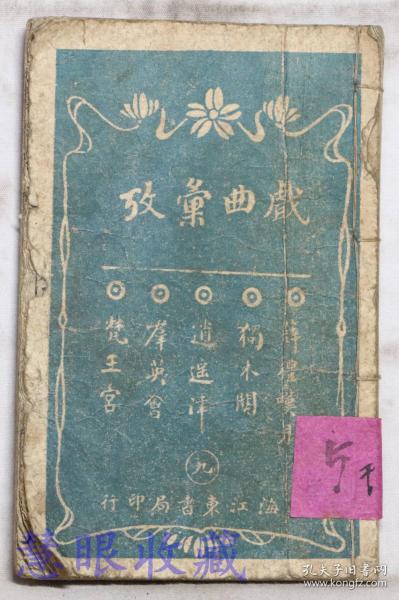 戲曲彙攷
獨木關
逍遥津
羣英會
梵王宮
九
海江東書局印行
慧眼收藏
孔夫子旧书网
www.kongfz.com